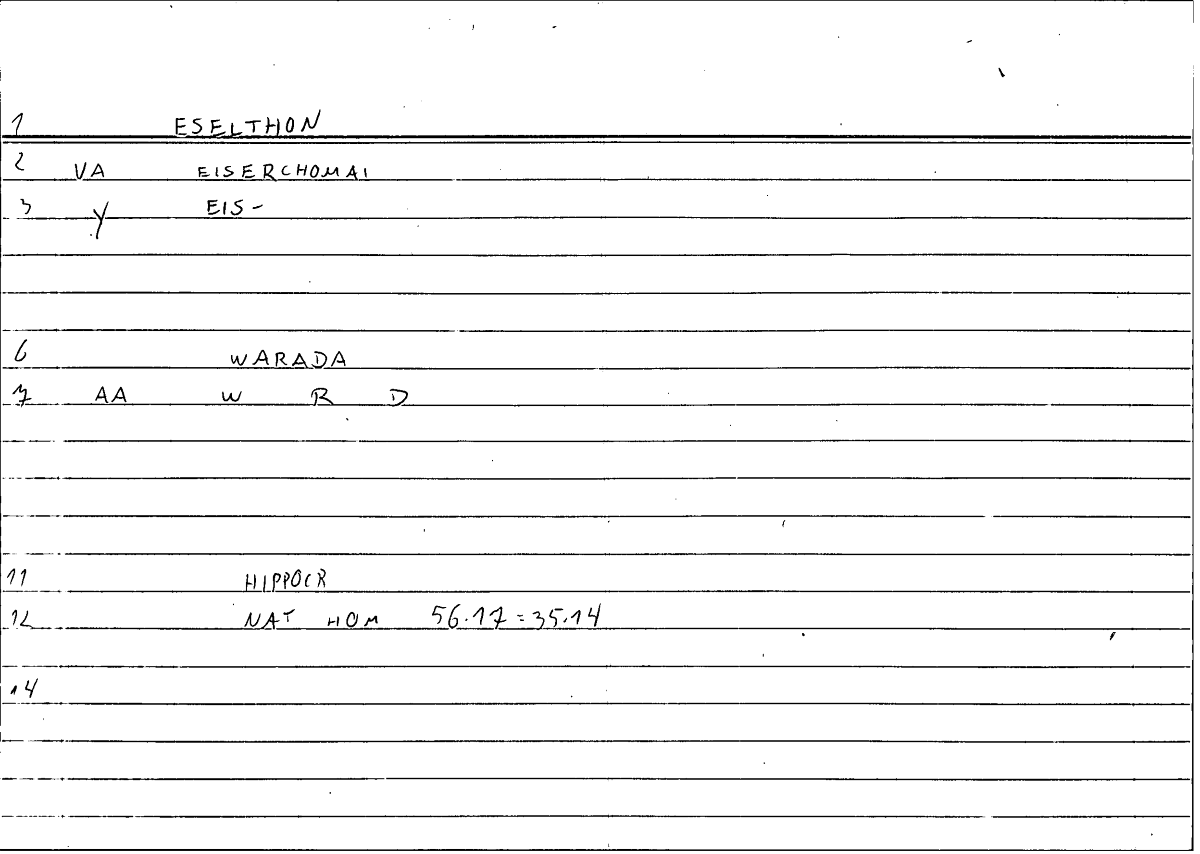 1 ESELTHON
2 VA EISERCHOMAI
3 Y EIS-
6 WARADA
7 AA W R D
11 HIPPOCR
12 NAT HOM 56.17=35.14
14